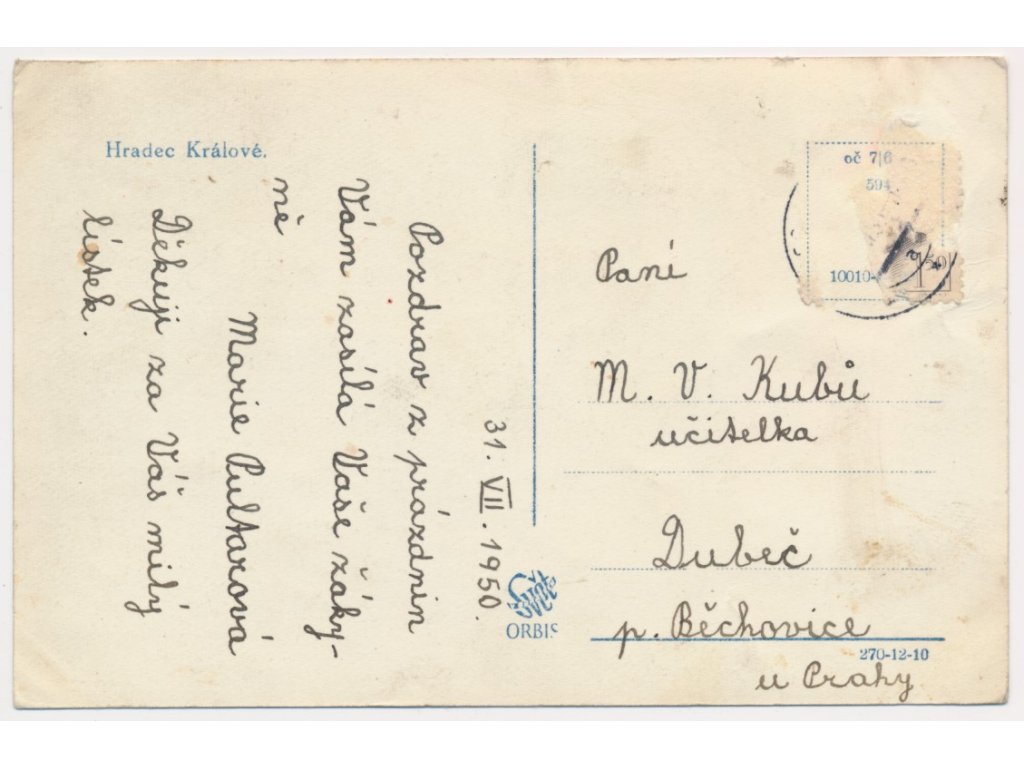 Hradec Králové.
31. VII. 1950.
Pozdrav z prázdnin
Vám zasílá Vaše žáky-
ně
Marie Pultarová
Děkuji za Váš milý
lístek.
oč 7|6
594
10010-
Paní
M. V. Kubů
učitelka
Dubeč
p. Běchovice
u Prahy
ORBIS
270-12-10